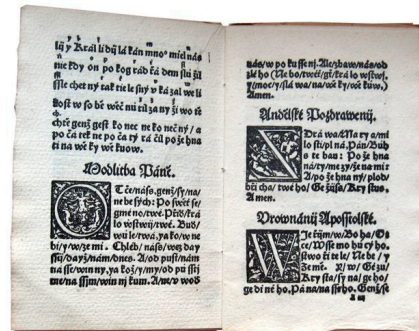 lij y Král li dij lá kán mno° miel nás
nic kdy on po kog rád ká dem sluʒil
ſſle chet ný tak tie le ſný w ká zal we li
koſt w ſo bě wěč nú rá zaný ži wo tě
chtě genž geſt ko nec ne ko neč ný / a
po čá tek ne po čá tý rá čil po že hna
ti na wě ky wět kuow.
Modlitba Páně.
OT če / náſs. genž / ſy / na /
ne be ſých: Po ſwět ſe
gmé no / twé. Přiď / krá
lo wſtwij / twé. Buď /
wuo le / twá / ya ko / w ne
bi / y / w / ze mi. Chléb / náſs / wez day
ſſij / dayž / nám / dnes. A / od puſt / nám
na ſſe / win ny / ya kož / y / my / od pú ſſtij
me / na ſſijm / win nij kum. A / ne / v woď
nás / w po ku ſſe nij. Ale / zbaw / nás / od
zlé ho (Ne bo / twé / gt / krá lo wſtwij /
y / moc / y / ſlá wa / na / wě ky / wět kuow.)
Amen.
Andělſké Pozdrawenij.
ZDrá wa / Ma ry a / mi
lo ſti / pl ná. Pán / Buh
s te bau: Po že hna
ná / ty / me zy / že na mi:
A / po že hna ný / plod /
bři cha / twé ho / Ge žijſs / Kry ſtus.
Amen.
Wrownánij Apoſſtolſké.
WIe řijm / w / Bo ha / Ot
ce / Wſſe mo hú cý ho.
stwo ři te le / Ne be / y
Ze mě. Y / w / Gežu /
Kry ſta / ſy na / ge ho /
ge di né ho. Pá na / na ſſe ho. Genž / ſe